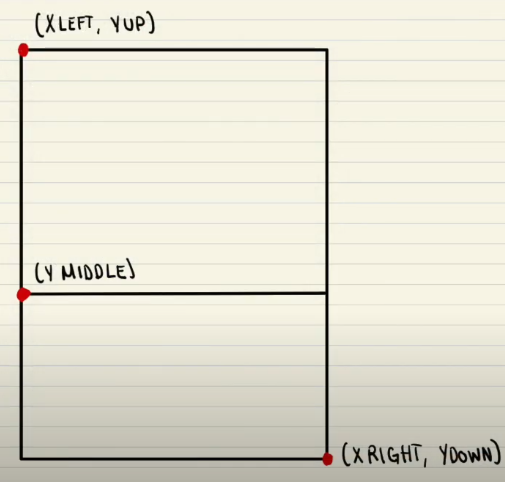 (XLEFT, YUP)
(Y MIDDLE)
(XRIGHT, YDOWN)